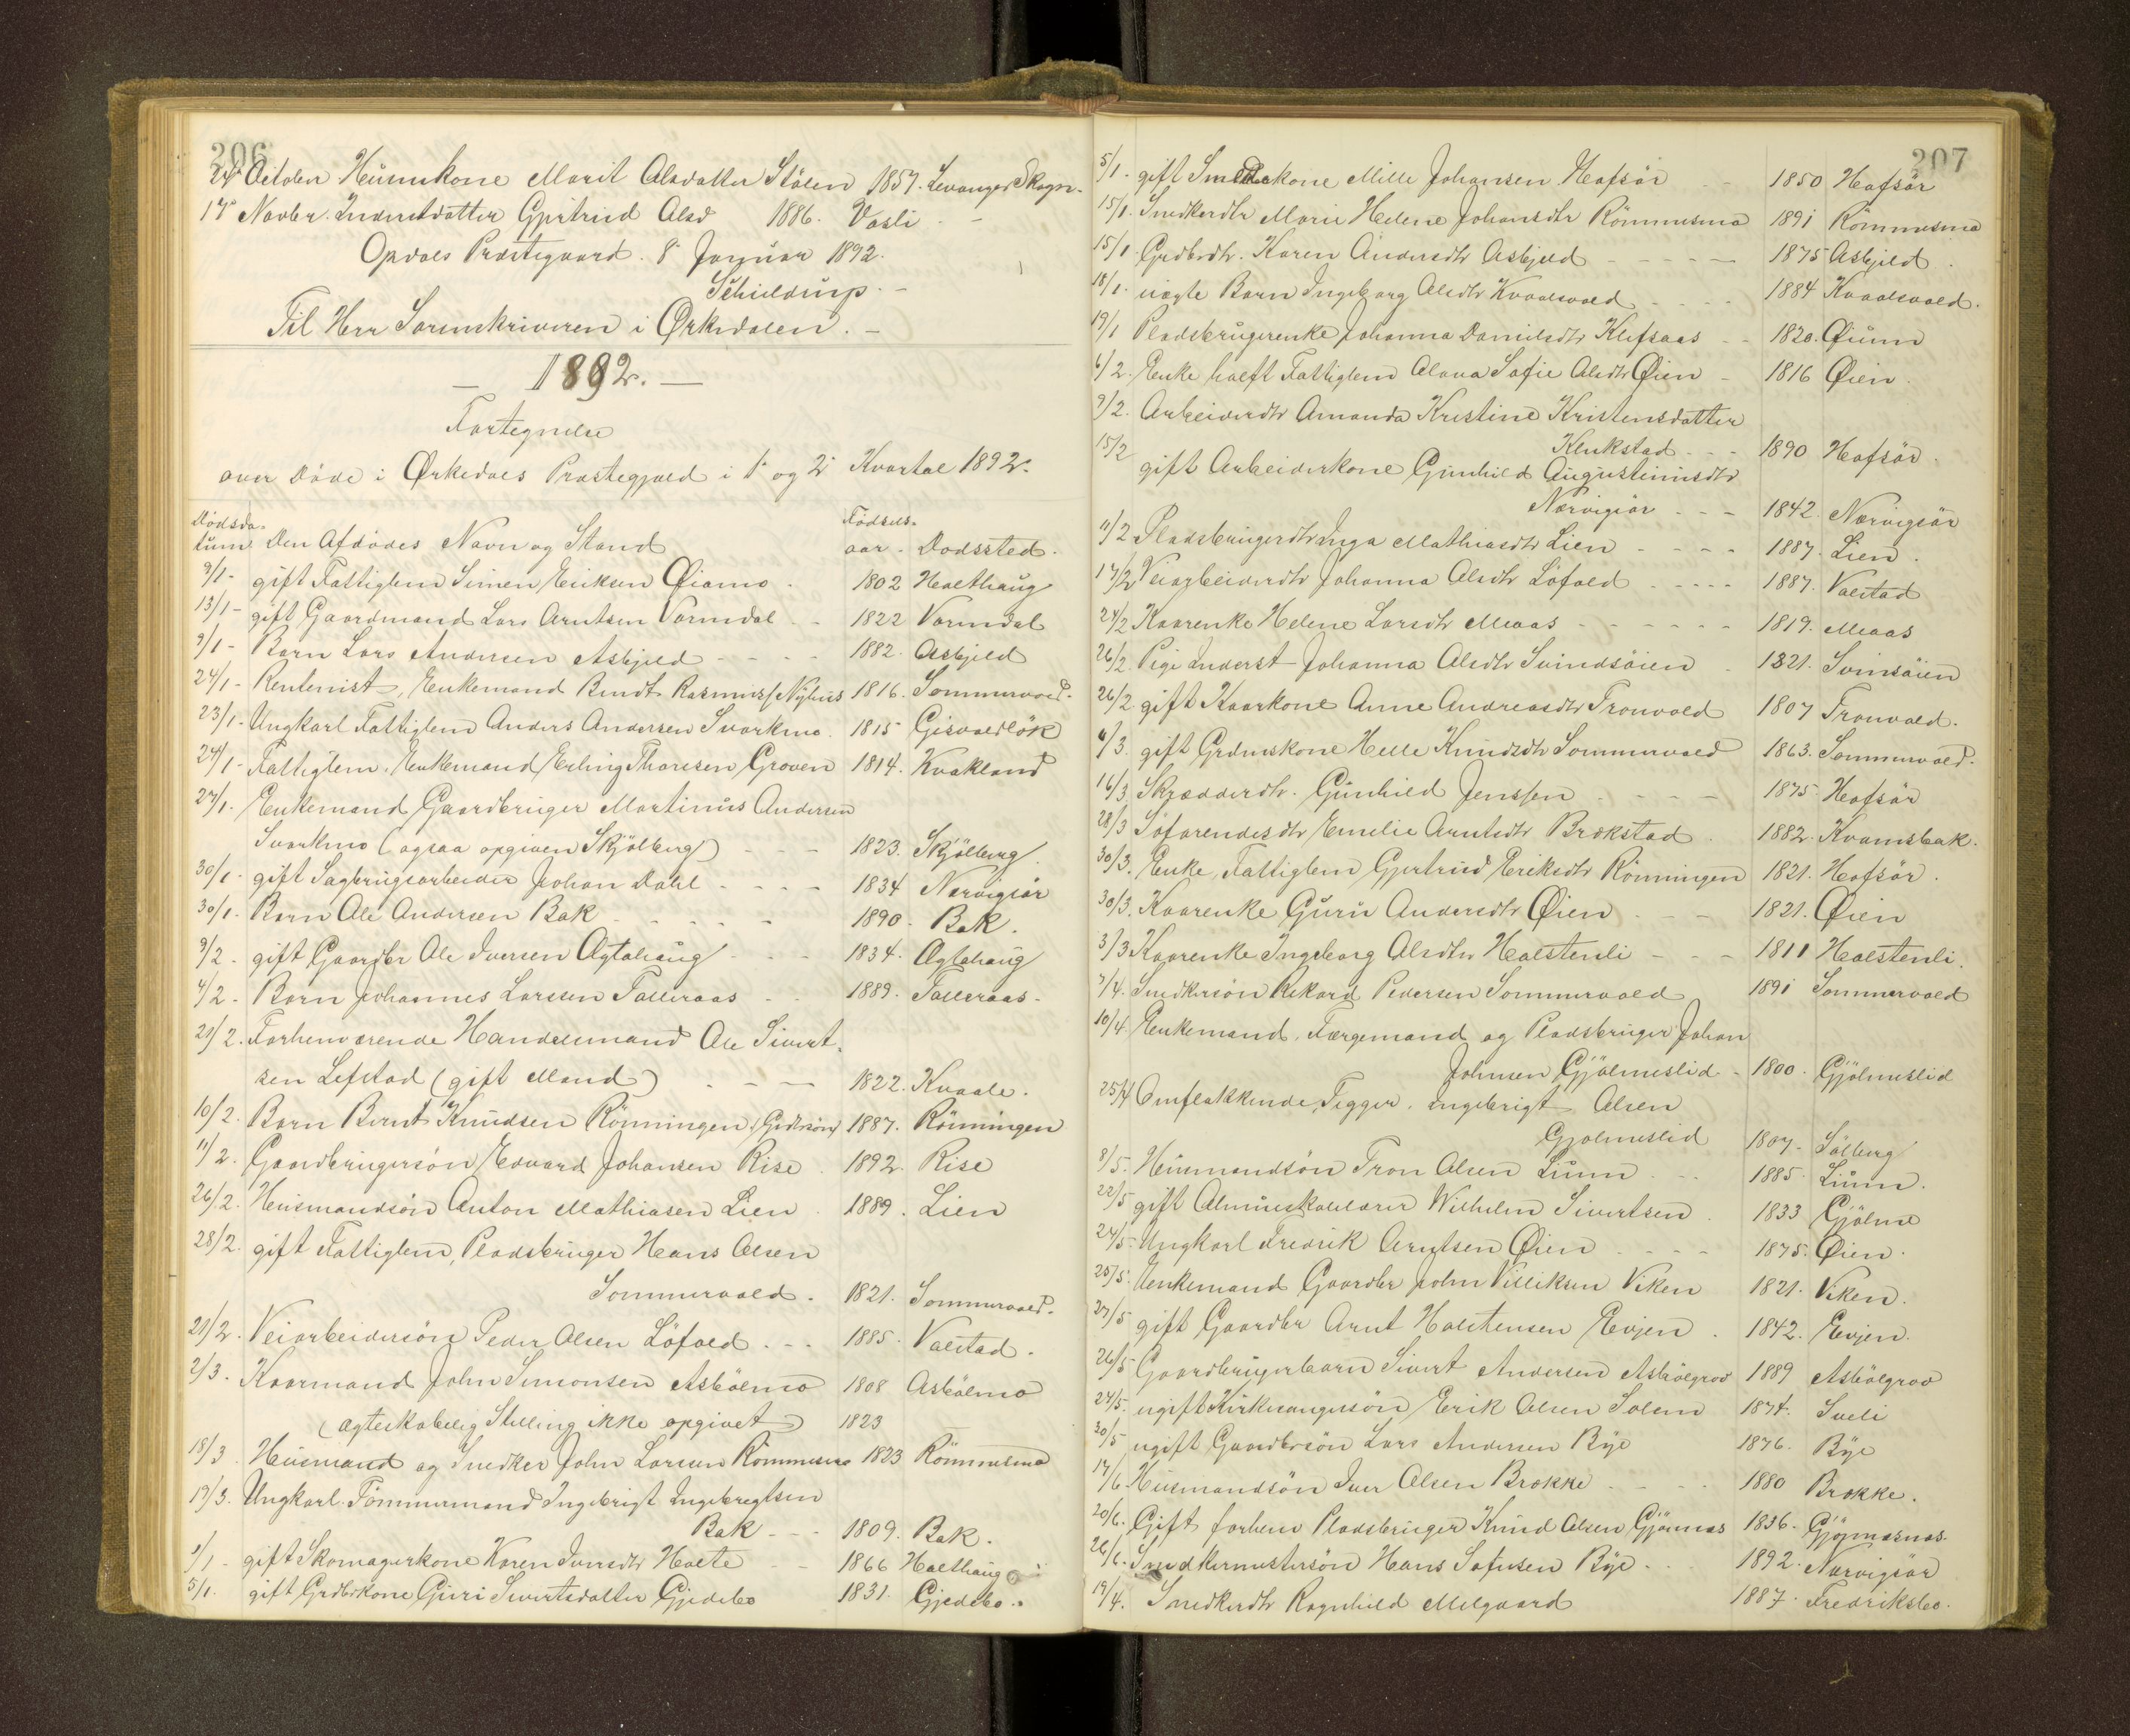 206
24 October Husmskone Marit Olsdatter Stölen 1857. Levanger Skogn.
17 Novbr. Inderstdatter Gjertrud Olsd 1886. Vasli
Opdals Præstegaard. 8 Januar 1892.
Schieldrup.
Til Herr Sorenskriveren i Ørkedalen.
1892.
Fortegnelse
over Döde i Ørkedals Præstegjæld i 1 og 2 Kvartal 1892.
Dödsda- Födsels-
tum Den Afdödes Navn og Stand aar - Dödssted.
9/1 - gift Fattiglem Simen Eriksen Øiamo 1802 Holthaug
13/1 - gift Gaardmand Lars Arntsen Vormdal 1822 Vormdal
9/1 - Barn Lars Andersen Asbjeld 1882. Asbjeld
24/1 - Rentenist, Enkemand Berndt Rasmuss Nyhus 1816. Sommervold.
23/1 - Ungkarl Fattiglem Anders Andersen Svorkmo 1815 Gisvoldlök
24/1 - Fattiglem. Enkemand Erling Thoresen Groven 1814. Kvakland
27/1. Enkemand Gaardbruger Martinus Andersen
Svorkmo (ogsaa opgiven Skjölberg) 1823. Skjölberg
30/1. gift Sagbrugsarbeider Johan Dahl 1834 Nervigsör
30/1. Barn Ole Andersen Bak 1890. Bak.
9/2 - gift Gaardbr Ole Iversen Agtahaug 1834. Agtahaug
4/2 - Barn Johannes Larssen Talleraas 1889. Talleraas
21/2. Forhenværende Handelsmand Ole Sivert-
sen Lefstad (gift Mand) 1822. Kvaale.
10/2. Barn Bernt Knudsen Rönningen (Gdbrsön) 1887. Rönningen
11/2. Gaardbrugersön Edvard Johansen Rise 1892. Rise
26/2. Husmandsön Anton Mathiasen Lien 1889. Lien
28/2. gift Fattiglem, Pladsbruger Hans Olsen
Sommervold. 1821. Sommervold.
21/2. Veiarbeidersön Peder Olsen Löfald 1885. Valstad.
2/3. Kaarmand John Simonsen Asbölmo 1808 Asbölmo
(ægteskabelig Stilling ikke opgivet) 1823
18/3. Husmand og Snedker John Larsen Römmesmo 1823 Römmesmo
19/3. Ungkarl. Tömmermand Ingebrigt Ingebregtsen
Bak 1809. Bak.
1/1 - gift Skomagerkone Karen Iversdtr Holte 1866 Holthaug
5/1. gift Grdbrkone Guri Sivertsdatter Gjedebo 1831. Gjedebo.
207
5/1 - gift Smedkone Mille Johansen Hofsör 1850 Hofsör
15/1. Snedkerdtr Marie Helene Johansdtr Römmesmo 1891 Römmesmo
15/1 Grdbrdtr. Karen Andersdtr Asbjeld 1875 Asbjeld
18/1. uægte Barn Ingeborg Olsdtr Kvaalsvold 1884 Kvaalsvold.
19/1 Pladsbrugerenke Johanna Danielsdtr Klefsaas 1820. Øium
6/2. Enke halft Fattiglem Olava Sofie Olsdtr Øien 1816 Øien
9/2. Arbeiderdtr Amanda Kristine Kristensdatter
Klukstad 1890 Hofsör.
15/2 gift Arbeiderkone Gunhild Augustinusdtr
Nervigsör 1842. Nervigsör
11/2 Pladsbrugerdtr Inga Mathiasdtr Lien 1887. Lien.
17/2 Veiarbeiderdtr Johanna Olsdtr Löfald 1887. Valstad
24/2 Kaarenke Helene Larsdtr Moas 1819. Moas
26/2. Pige Inderst Johanna Olsdtr Svindsöien 1821. Svinsöien
26/2 gift Kaarkone Anne Andreasdtr Tronvold 1807 Tronvold.
6/3. gift Grdmskone Helle Knudsdtr Sommervold 1863. Sommervold.
16/3 Skrædderdtr. Gunhild Jenssen 1875 Hofsör
28/3 Söfarendesdtr Emelie Arntsdtr Brokstad 1882. Kvamsbak.
30/3. Enke, Fattiglem Gjertrud Eriksdtr Rönningen 1821. Hofsör.
30/3. Kaarenke Guru Andersdtr Øien 1821. Øien
3/3 Kaarenke Ingeborg Olsdtr Holstenli 1811 Holstenli.
7/4. Snedkersön Rikard Pedersen Sommervold 1891 Sommervold
10/4 Enkemand. Færgemand og Pladsbruger Johan
Johnsen Gjölmeslid 1800. Gjölmeslid
25/4 Omflakkende Tigger. Ingebrigt Olsen
Gjölmeslid 1807. Sölberg
8/5. Husmandsön Tron Olsen Lium 1885. Lium.
22/5 gift Almueskolelærer Wilhelm Sivertsen 1833 Gjölme
24/5 Ungkarl Fredrik Arntsen Øien 1875. Øien.
25/5 Enkemand Gaardbr John Villiksen Viken 1821. Viken.
27/5 gift Gaardbr Arnt Holstensen Evjen 1842. Evjen.
26/5 Gaardbrugerbarn Sivert Andersen Asbölgrov 1889 Asbölgrov
24/5. ugift Kirkesangersön Erik Olsen Solem 1874. Sveli
30/5 ugift Gaardbrsön Lars Andersen Bye 1876. Bye
17/6 Husmandsön Iver Olsen Brokke 1880 Brokke.
20/6. Gift forhenv Pladsbruger Knud Olsen Gjönnæs 1836. Gjönnæsnæs.
26/6. Snedkermestersön Hans Sofusen Bye 1892. Nervigsör
19/4. Snedkerdtr Ragnhild Melgaard 1887. Fredriksbo.